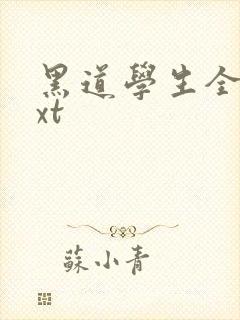 黑道學生全
xt
蘇小青